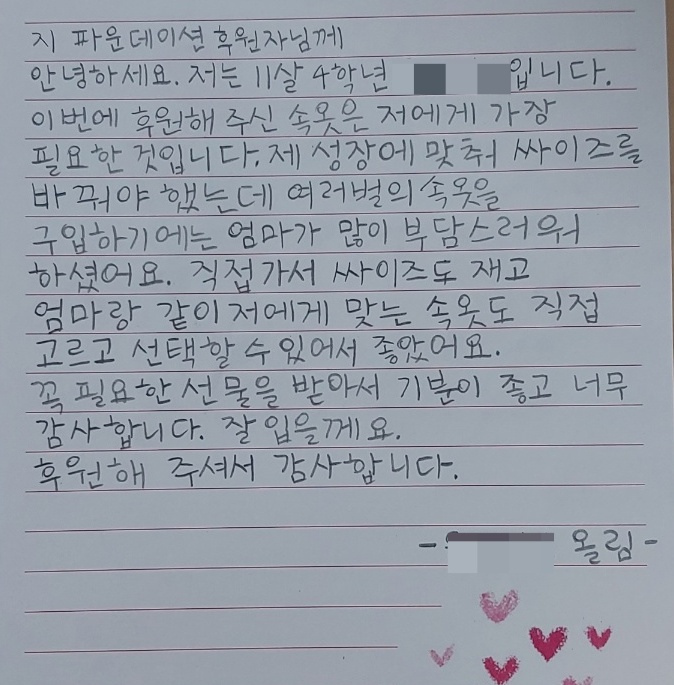 지 파운데이션 후원자님께
안녕하세요. 저는 11살 4학년 입니다.
이번에 후원해 주신 속옷은 저에게 가장
필요한 것입니다. 제 성장에 맞춰 싸이즈를
바꿔야 했는데 여러벌의 속옷을
구입하기에는 엄마가 많이 부담스러워
하셨어요. 직접가서 싸이즈도 재고
엄마랑 같이 저에게 맞는 속옷도 직접
고르고 선택할 수 있어서 좋았어요.
꼭 필요한 선물을 받아서 기분이 좋고 너무
감사합니다. 잘 입을께요.
후원해 주셔서 감사합니다.
- 올림 -